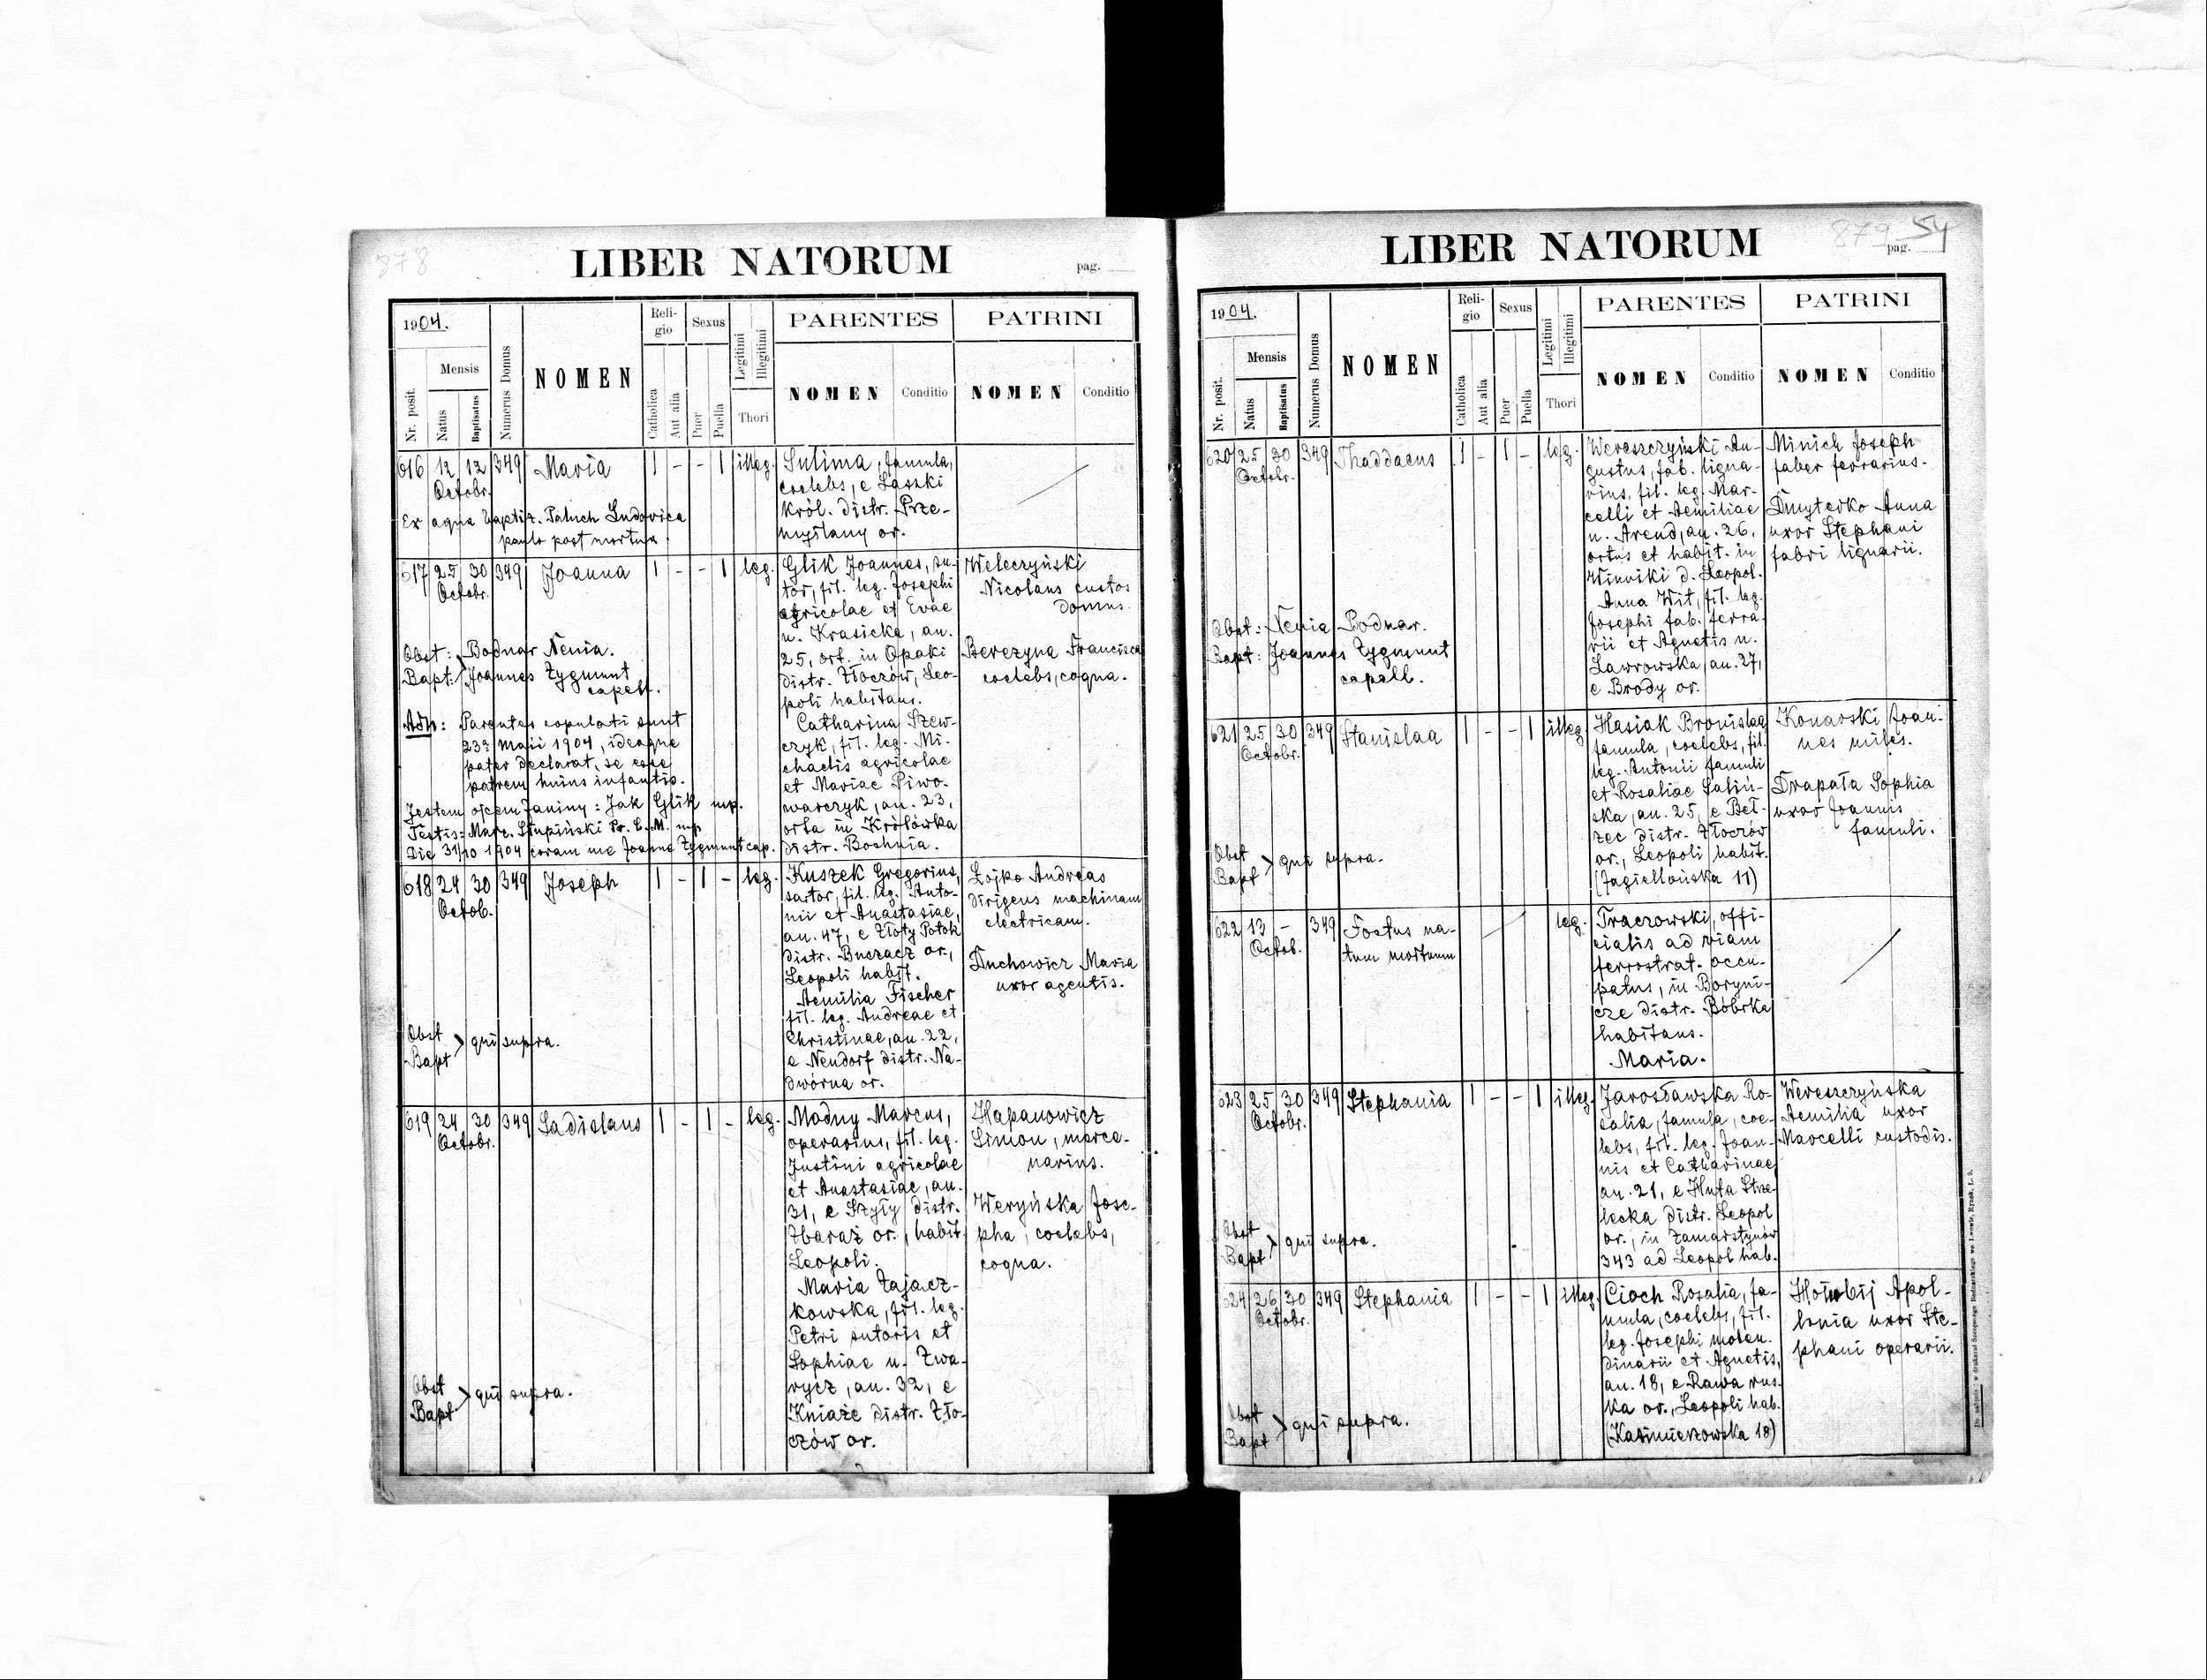 878
LIBER NATORUM
pag.
1904.
Mensis
Nr. posit.
Natus
Baptisatus
Numerus Domus
NOMEN
Reli-
gio
Catholica
Aut alia
Sexus
Puer
Puella
Legitimi
Illegitimi
Thori
PARENTES
NOMEN
Conditio
PATRINI
NOMEN
Conditio
616 12 12 349 Maria 1 - - 1 illeg.
Octobr.
Ex aqua baptiz. Paluch Ludovica
paulo post mortua
Sulima, famula,
coelebs, e Laszki
król. distr. Prze-
myślany or.
617 25 30 349 Joanna 1 - - 1 leg.
Octobr.
Obst: Bodnar Xenia.
Bapt: Joannes Zygmunt
capell.
Adn: Parentes copulati sunt
23a maii 1904, ideoque
pater declarat, se esse
patrem huius infantis.
Jestem ojcem Janiny: Jak Glik mp.
Testis: Marc. Słupiński Pr. C. M. mp
Die 31/10 1904 coram me Joanne Zygmunt cap.
Glik Joannes, su-
tor, fil. leg. Josephi
agricolae et Evae
n. Krasicka, an.
25, ort. in Opaki
distr. Złoczów, Leo-
poli habitans.
Catharina Szew-
czyk, fil. leg. Mi-
chaelis agricolae
et Mariae Piwo-
warczyk, an. 23,
orta in Królówka
distr. Bochnia.
Weleczyński
Nicolaus custos
domus.
Berezyna Francisca
coelebs, coqua.
618 24 30 349 Joseph 1 - 1 - leg.
Octob.
Obst
Bapt > qui supra.
Kuszek Gregorius,
sartor, fil. leg. Anto-
nii et Anastasiae,
an. 47, e Złoty Potok
distr. Buczacz or.,
Leopoli habit.
Aemilia Fischer
fil. leg. Andreae et
Christinae, an. 22,
e Neudorf distr. Na-
dwórna or.
Łojko Andreas
dirigens machinam
electricam.
Duchowicz Maria
uxor agentis.
619 24 30 349 Ladislaus 1 - 1 - leg.
Octobr.
Obst
Bapt > qui supra.
Modny Marcus,
operarius, fil. leg.
Justini agricolae
et Anastasiae, an.
31, e Szyły distr.
Zbaraż or., habit.
Leopoli.
Maria Zajacz-
kowska, fil. leg.
Petri sutoris et
Sophiae n. Zwa-
rycz, an. 32, e
Kniaże distr. Zło-
czów or.
Hapanowicz
Simon, merce-
narius.
Weryńska Jose-
pha, coelebs,
coqua.
LIBER NATORUM
879
pag. 54
1904.
Mensis
Nr. posit.
Natus
Baptisatus
Numerus Domus
NOMEN
Reli-
gio
Catholica
Aut alia
Sexus
Puer
Puella
Legitimi
Illegitimi
Thori
PARENTES
NOMEN
Conditio
PATRINI
NOMEN
Conditio
620 25 30 349 Thaddaeus 1 - 1 - leg.
Octobr.
Obst: Xenia Bodnar.
Bapt: Joannes Zygmunt
capell.
Wereszczyński Au-
gustus, fab. ligna-
rius, fil. leg. Mar-
celli et Aemiliae
n. Arend, an. 26,
ortus et habit. in
Winniki d. Leopol.
Anna Wit, fil. leg.
Josephi fab. ferra-
rii et Agnetis n.
Lawrowska, an. 27,
e Brody or.
Minich Joseph
faber ferrarius.
Dmyterko Anna
uxor Stephani
fabri lignarii.
621 25 30 349 Stanislaa 1 - - 1 illeg.
Octobr.
Obst
Bapt > qui supra.
Hasiak Bronislaa
famula, coelebs, fil.
leg. Antonii famuli
et Rosaliae Saliń-
ska, an. 25, e Beł-
zec distr. Złoczów
or., Leopoli habit.
(Jagiellońska 11)
Konarski Joan-
nes miles.
Drapała Sophia
uxor Joannis
famuli.
622 13 - 349 Foetus na-
Octob.
tum mortuum
leg.
Traczowski, offi-
cialis ad viam
ferrostrat. occu-
patus, in Boryni-
cze distr. Bóbrka
habitans.
Maria.
623 25 30 349 Stephania 1 - - 1 illeg.
Octobr.
Obst
Bapt > qui supra.
Jarosławska Ro-
salia, famula, coe-
lebs, fil. leg. Joan-
nis et Catharinae
an. 21, e Huta Strze-
lecka distr. Leopol
or., in Zamarstynów
343 ad Leopol hab.
Wereszczyńska
Aemilia uxor
Marcelli custodis.
624 26 30 349 Stephania 1 - - 1 illeg.
Octobr.
Obst
Bapt > qui supra.
Cioch Rosalia, fa-
mula, coelebs, fil.
leg. Josephi molen-
dinarii et Agnetis,
an. 18, e Rawa rus-
ka or., Leopoli hab.
(Kazimierzowska 18)
Hołubij Apol-
lonia uxor Ste-
phani operarii.